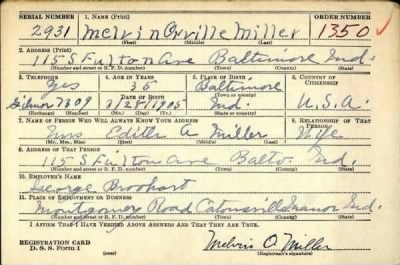 SERIAL NUMBER 1. NAME (Print) ORDER NUMBER
2931 Melvin Orville Miller 1350
(First) (Middle) (Last)
2. ADDRESS (Print)
115 S Fulton Ave Baltimore Md.
(Number and street or R. F. D. number) (Town) (County) (State)
3. TELEPHONE 4. AGE IN YEARS 5. PLACE OF BIRTH 6. COUNTRY OF CITIZENSHIP
Yes 35 Baltimore
DATE OF BIRTH (Town or county)
Gilmor 7609 3/28/1905 Md. U.S.A.
(Exchange) (Number) (Mo.) (Day) (Yr.) (State or country)
7. NAME OF PERSON WHO WILL ALWAYS KNOW YOUR ADDRESS 8. RELATIONSHIP OF THAT PERSON
Mrs Edith A Miller Wife
(Mr., Mrs., Miss) (First) (Middle) (Last)
9. ADDRESS OF THAT PERSON
115 S Fulton Ave Balto. Md.
(Number and street or R. F. D. number) (Town) (County) (State)
10. EMPLOYER'S NAME
George Broohart
11. PLACE OF EMPLOYMENT OR BUSINESS
Montgomery Road Catonsville Md.
(Number and street or R. F. D. number) (Town) (County) (State)
I AFFIRM THAT I HAVE VERIFIED ABOVE ANSWERS AND THAT THEY ARE TRUE.
REGISTRATION CARD
D. S. S. Form 1 Melvin O. Miller
(Registrant's signature)